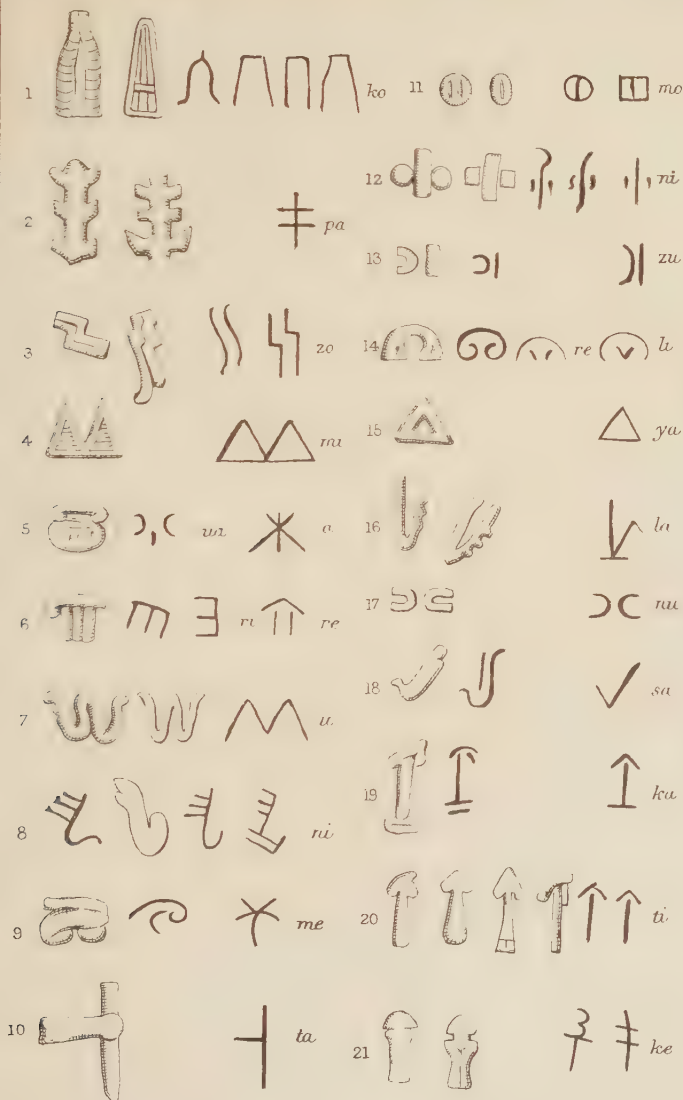 1 ko
2 pa
3 zo
4
5 a
6 ri re
7 u
8
9 me
10 ta
11 mo
12 ni
13 zu
14 re
15 ya
16 la
17 nu
18 sa
19 ka
20 ti
21 ke